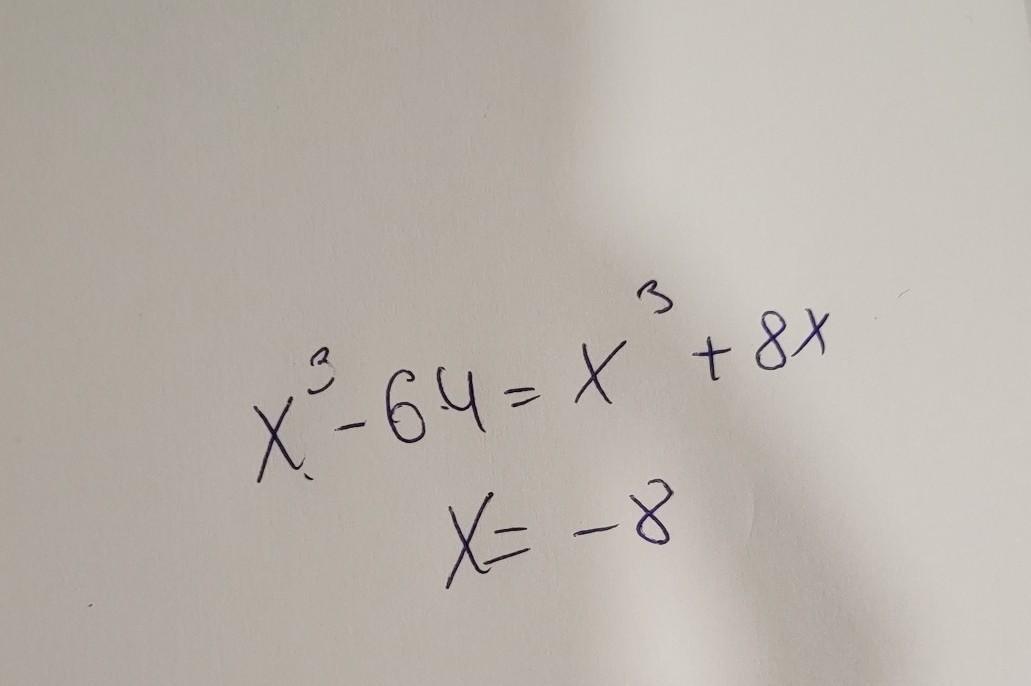 x³ - 64 = x³ + 8x
x = -8